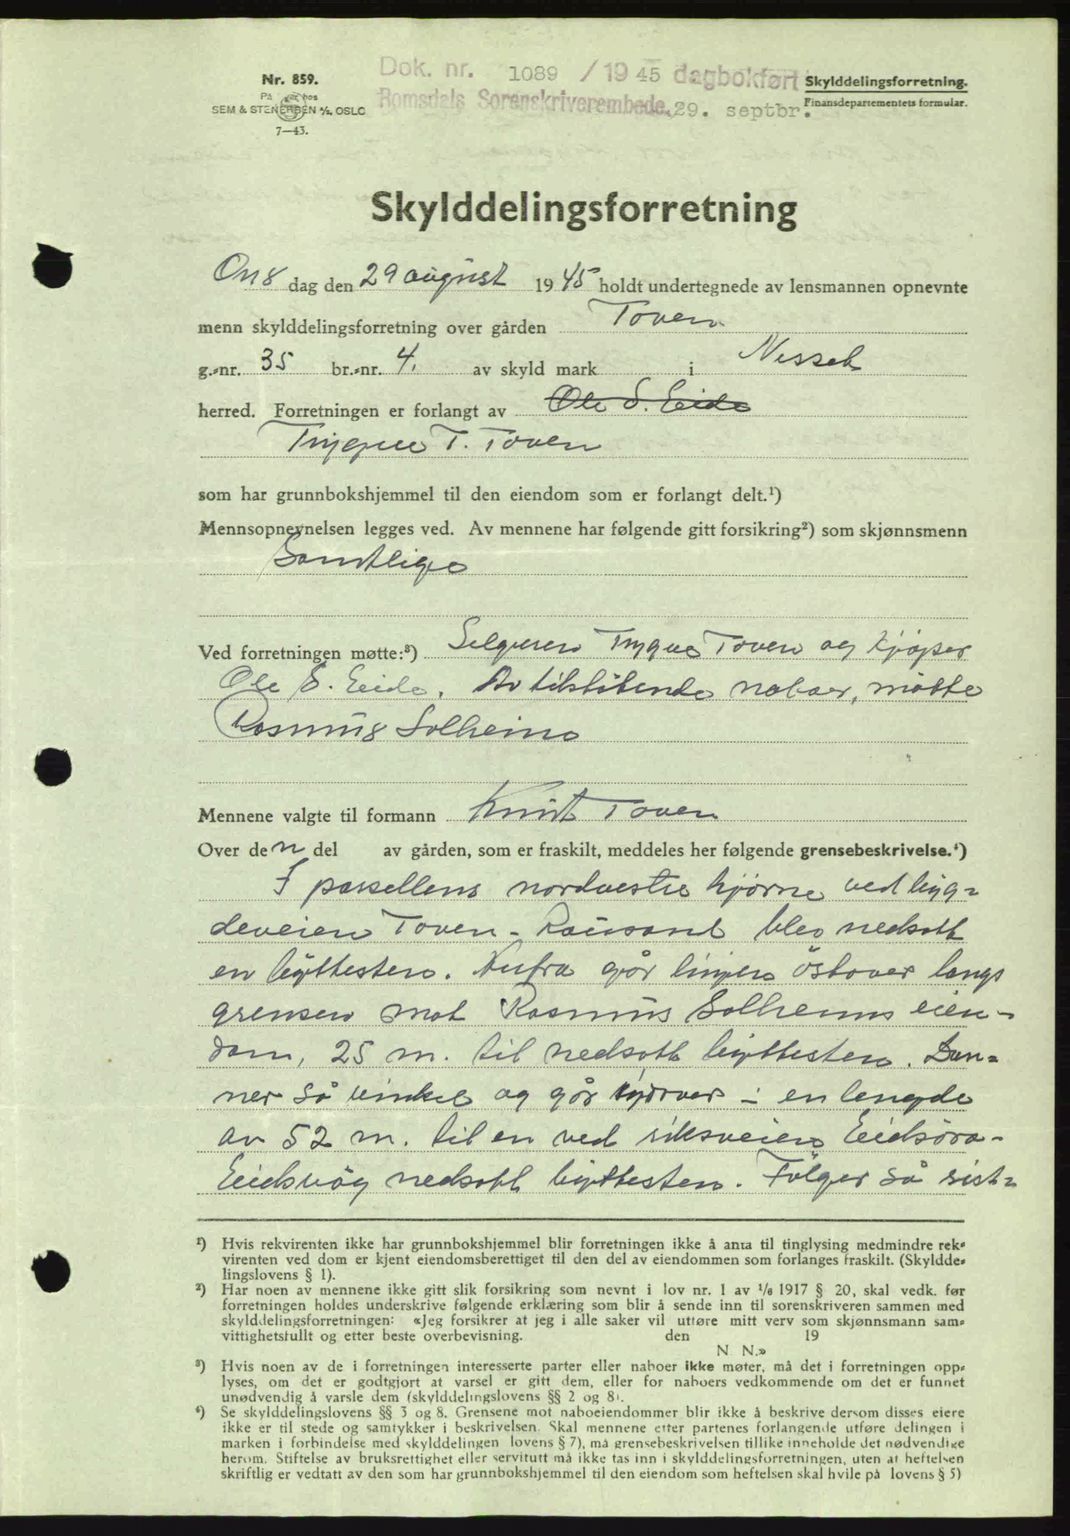 Dok. nr. 1089 / 19 45 dagbokført
Romsdals Sorenskriverembede, 29. septbr.
Nr. 859.
På hos
SEM & STENERSEN A/S, OSLO
7—43.
Skylddelingsforretning.
Finansdepartementets formular.
Skylddelingsforretning
Ons dag den 29 august 19 45 holdt undertegnede av lensmannen opnevnte
menn skylddelingsforretning over gården Toven
g.-nr. 35 br.-nr. 4. av skyld mark i Nesset
herred. Forretningen er forlangt av Ole S. Eide
Trygve T. Toven
som har grunnbokshjemmel til den eiendom som er forlangt delt.¹)
Mennsopnevnelsen legges ved. Av mennene har følgende gitt forsikring²) som skjønnsmenn
Samtlige
Ved forretningen møtte:³) Selgeren Trygve Toven og kjøper
Ole S. Eide. Av tilstøtende naboer, møtte
Rasmus Solheim
Mennene valgte til formann Knut Toven
Over den del av gården, som er fraskilt, meddeles her følgende grensebeskrivelse.⁴)
I parsellens nordvestre hjørne ved byg-
deveien Toven - Rausand blev nedsatt
en byttesten. Herfra går linjen østover langs
grensen mot Rasmus Solheims eien-
dom, 25 m. til nedsatt byttesten. Dan-
ner så vinkel og går sydover i en lengde
av 52 m. til en ved riksveien Eidsøra-
Eidsvåg nedsatt byttesten. Følger så sist-
¹) Hvis rekvirenten ikke har grunnbokshjemmel blir forretningen ikke å anta til tinglysing medmindre rek-
virenten ved dom er kjent eiendomsberettiget til den del av eiendommen som forlanges fraskilt. (Skyldde-
lingslovens § 1).
²) Har noen av mennene ikke gitt slik forsikring som nevnt i lov nr. 1 av 1/6 1917 § 20, skal vedk. før
forretningen holdes underskrive følgende erklæring som blir å sende inn til sorenskriveren sammen med
skylddelingsforretningen: «Jeg forsikrer at jeg i alle saker vil utføre mitt verv som skjønnsmann sam-
vittighetsfullt og etter beste overbevisning. den 19
N. N.»
³) Hvis noen av de i forretningen interesserte parter eller naboer ikke møter, må det i forretningen opp-
lyses, om det er godtgjort at varsel er gitt dem, eller for naboers vedkommende om det er funnet
unødvendig å varsle dem (skylddelingslovens §§ 2 og 8).
⁴) Se skylddelingslovens §§ 3 og 8. Grensene mot naboeiendommer blir ikke å beskrive dersom disses eiere
ikke er til stede og samtykker i beskrivelsen. Skal mennene etter partenes forlangende utføre delingen i
marken i forbindelse med skylddelingen lovens § 7), må grensebeskrivelsen tillike inneholde det nødvendige
herom. Stiftelse av bruksrettighet eller servitutt må ikke tas inn i skylddelingsforretningen, uten at heftelsen
skriftlig er vedtatt av den som har grunnbokshjemmel til den eiendom som heftelsen skal hvile på lovens § 5)